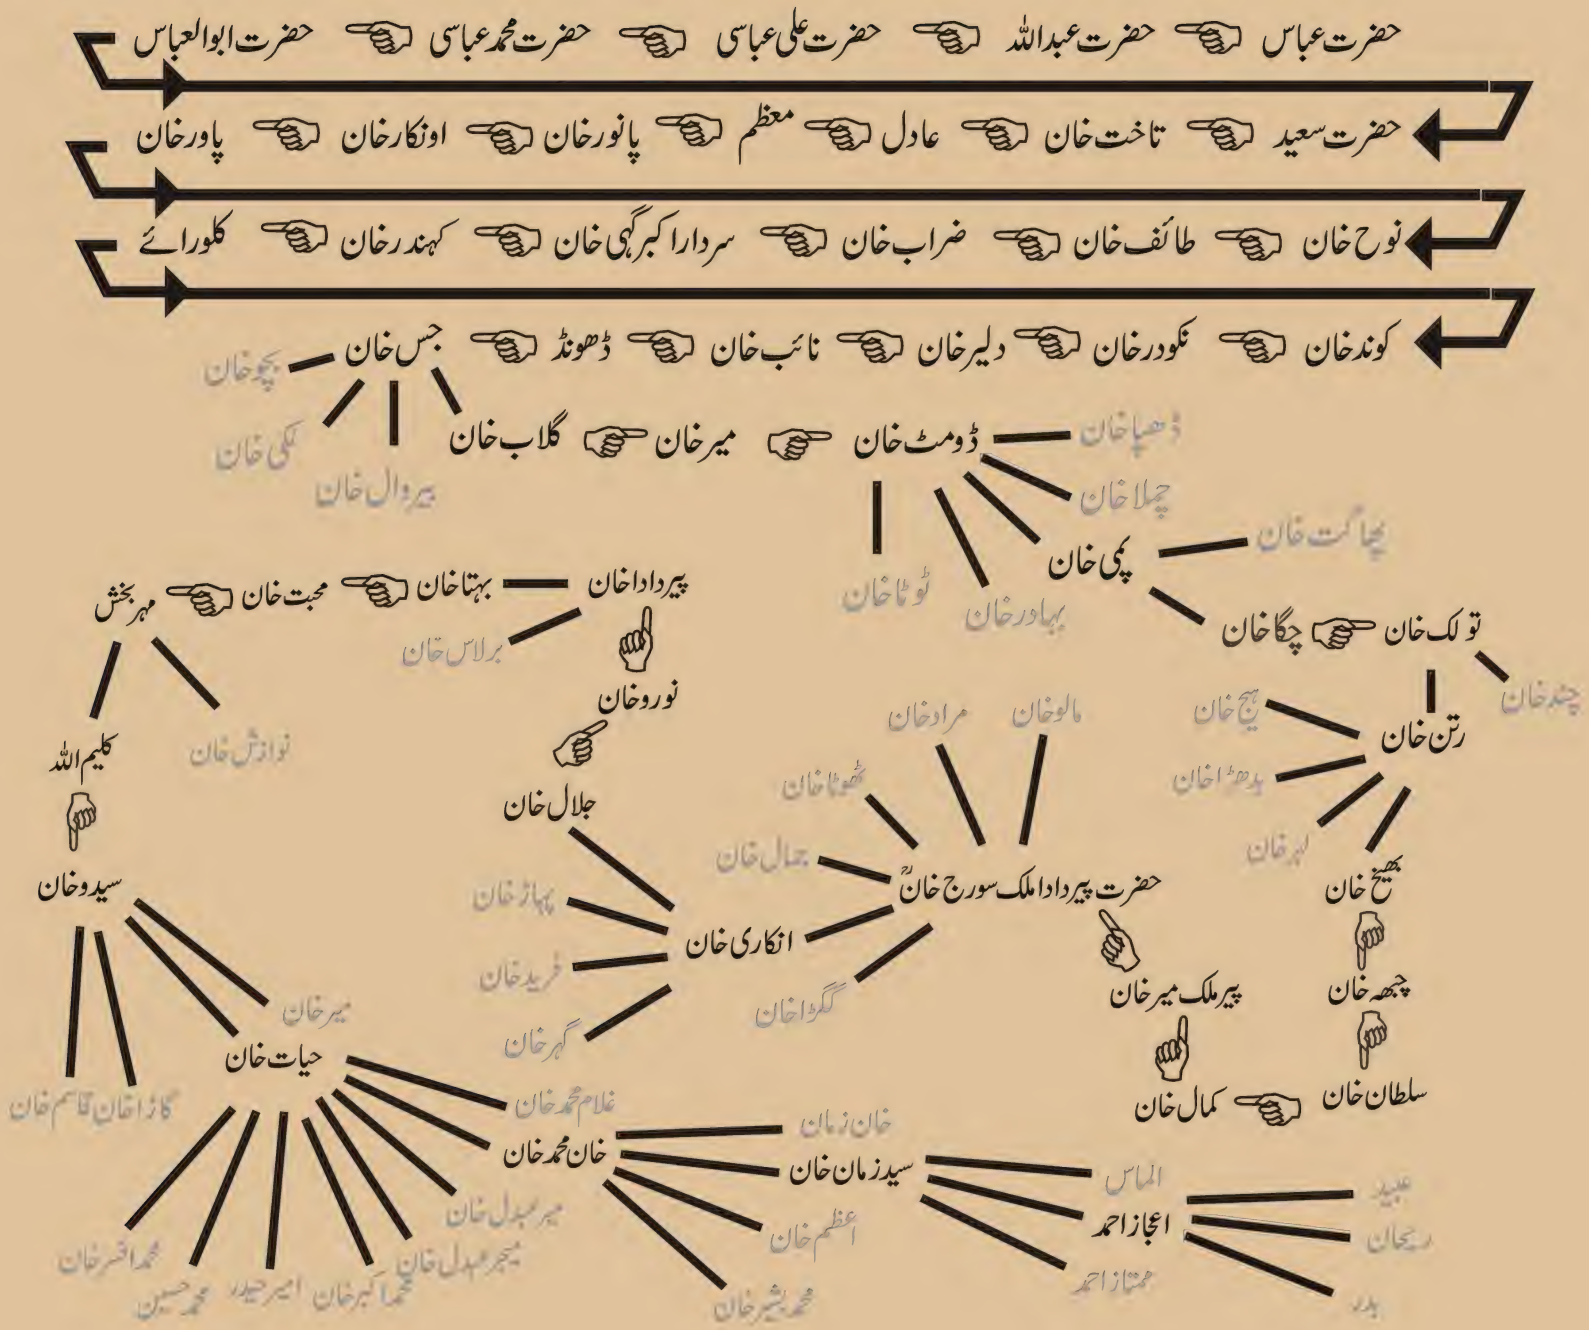 حضرت عباس حضرت عبداللہ حضرت علی عباسی حضرت محمد عباسی حضرت ابوالعباس
حضرت سعید تاخت خان عادل معظم پانور خان اونکار خان پاور خان
نوح خان طائف خان ضراب خان سردار اکبر گہی خان کہندر خان کلورائے
کوند خان نکودر خان دلیر خان نائب خان ڈھونڈ جس خان
بچو خان
لکی خان
بیروال خان
گلاب خان میر خان ڈومٹ خان
ڈھپا خان
چملا خان
پمی خان
بہادر خان
ٹوٹا خان
پھاگت خان
چگا خان تولک خان
چند خان
رتن خان
بدھڑا خان
لہر خان
بھیخ خان
چبھہ خان
سلطان خان کمال خان
پیر ملک میر خان
حضرت پیر دادا ملک سورج خانؒ
مالو خان
مراد خان
ٹھوٹا خان
جمال خان
گگڑا خان
انکاری خان
پہاڑ خان
فرید خان
گہر خان
جلال خان
نورو خان
پیر دادا خان
بہتا خان محبت خان مہر بخش
برلاس خان
نوازش خان
کلیم اللہ
سیدو خان
میر خان
حیات خان
گاڑا خان
قاسم خان
غلام محمد خان
خان محمد خان
میر عبدل خان
میجر عبدل خان
محمد اکبر خان
امیر حیدر
محمد حسین
محمد افسر خان
خان زمان
سید زمان خان
اعظم خان
محمد بشیر خان
الماس
اعجاز احمد
ممتاز احمد
عبید
ریحان
بدر